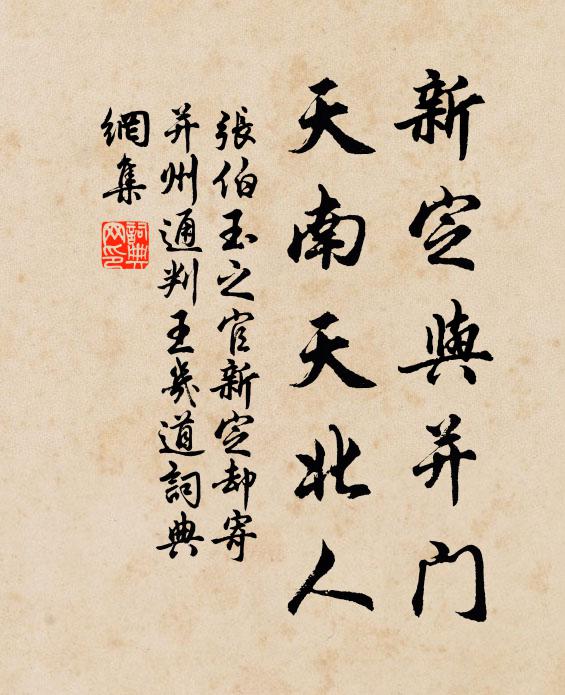 新定與并門
天南天北人
張伯玉之官新定却寄
并州通判王幾道詞典
網集
詞典網印